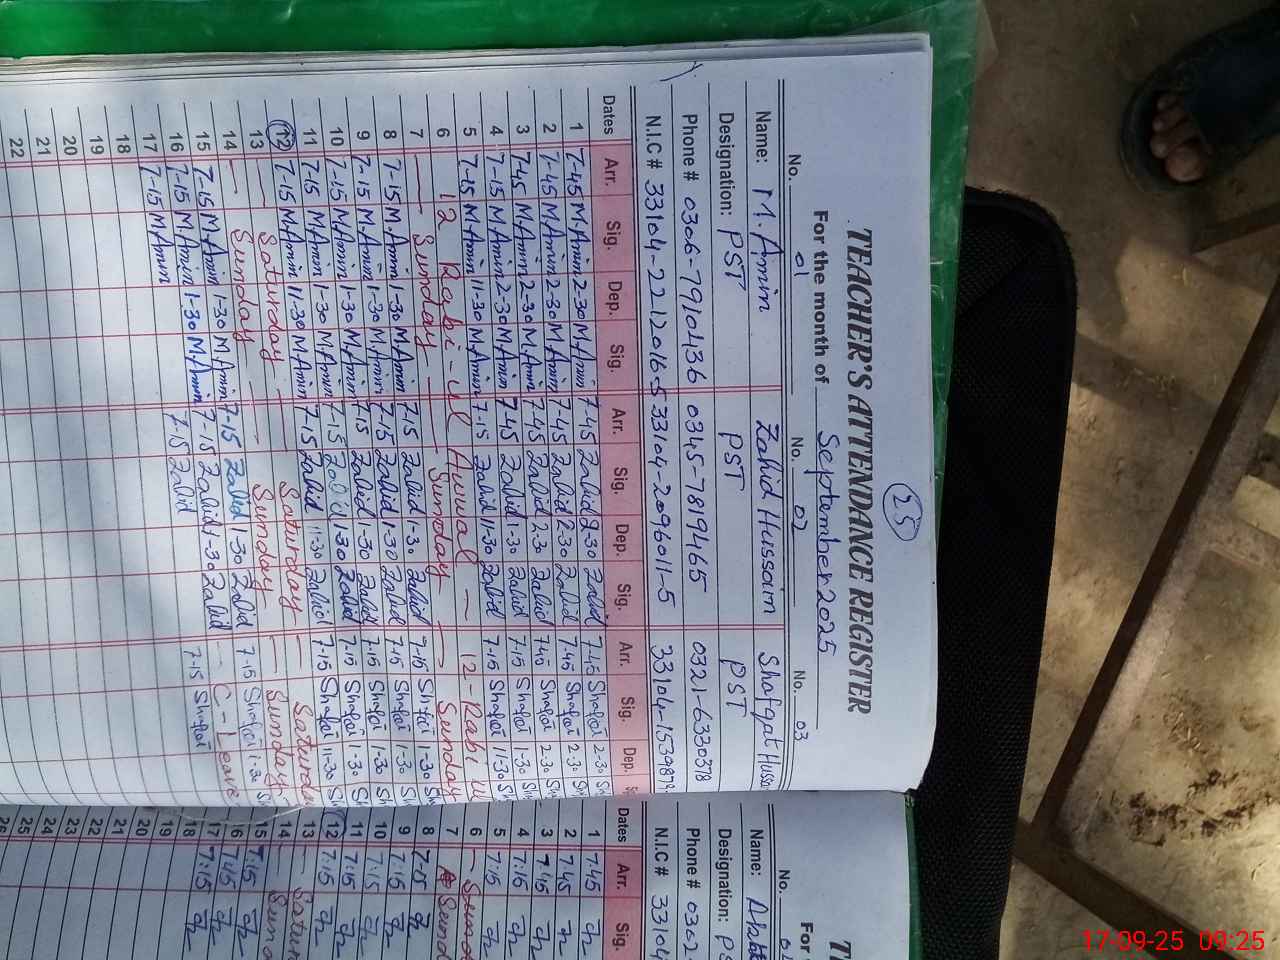 25
TEACHER'S ATTENDANCE REGISTER
For the month of September 2025
No. 01 No. 02 No. 03
Name: M. Amin Zahid Hussain Shafqat Hussa
Designation: PST PST PST
Phone # 0306-7910436 0345-7819465 0321-6330378
N.I.C # 33104-2212016-5 33104-2096011-5 33104-1539879
Dates Arr. Sig. Dep. Sig. Arr. Sig. Dep. Sig. Arr. Sig. Dep.
1 7-45 M.Amin 2-30 M.Amin 7-45 Zahid 2-30 Zahid 7-45 Shafqat 2-30
2 7-45 M.Amin 2-30 M.Amin 7-45 Zahid 2-30 Zahid 7-45 Shafqat 2-30
3 7-45 M.Amin 2-30 M.Amin 7-45 Zahid 2-30 Zahid 7-45 Shafqat 2-30
4 7-15 M.Amin 2-30 M.Amin 7-45 Zahid 1-30 Zahid 7-15 Shafqat 1-30
5 7-15 M.Amin 11-30 M.Amin 7-15 Zahid 11-30 Zahid 7-15 Shafqat 11-30
6 12 Rabi-ul Awwal 12-Rabi Ul
7 Sunday Sunday Sunday
8 7-15 M.Amin 1-30 M.Amin 7-15 Zahid 1-30 Zahid 7-15 Shafqat 1-30
9 7-15 M.Amin 1-30 M.Amin 7-15 Zahid 1-30 Zahid 7-15 Shafqat 1-30
10 7-15 M.Amin 1-30 M.Amin 7-15 Zahid 1-30 Zahid 7-15 Shafqat 1-30
11 7-15 M.Amin 1-30 M.Amin 7-15 Zahid 1-30 Zahid 7-15 Shafqat 1-30
12 7-15 M.Amin 11-30 M.Amin 7-15 Zahid 11-30 Zahid 7-15 Shafqat 11-30
13 Saturday Saturday Saturda
14 Sunday Sunday Sunday
15 7-15 M.Amin 1-30 M.Amin 7-15 Zahid 1-30 Zahid 7-15 Shafqat 1-30
16 7-15 M.Amin 1-30 M.Amin 7-15 Zahid 1-30 Zahid C-Leave
17 7-15 M.Amin 7-15 Zahid 7-15 Shafqat
18
19
20
21
22
No.
For
Name:
Designation: PS
Phone # 0302
N.I.C # 33104
Dates Arr. Sig.
1 7:45
2 7:45
3 7:45
4 7:15
5 7:15
6
7 Sund
8 7:15
9 7:15
10 7:15
11 7:15
12 7:15
13 Satur
14 Sund
15 7:15
16 7:45
17 7:15
18
19
20
21
22
23
24
25
26
17-09-25 09:25